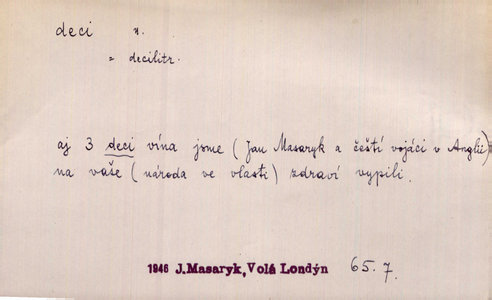 deci n.
= decilitr.
aj 3 deci vína jsme (Jan Masaryk a čeští vojáci v Anglii)
na vaše (národa ve vlasti) zdraví vypili.
1946 J.Masaryk,Volá Londýn 65.7.